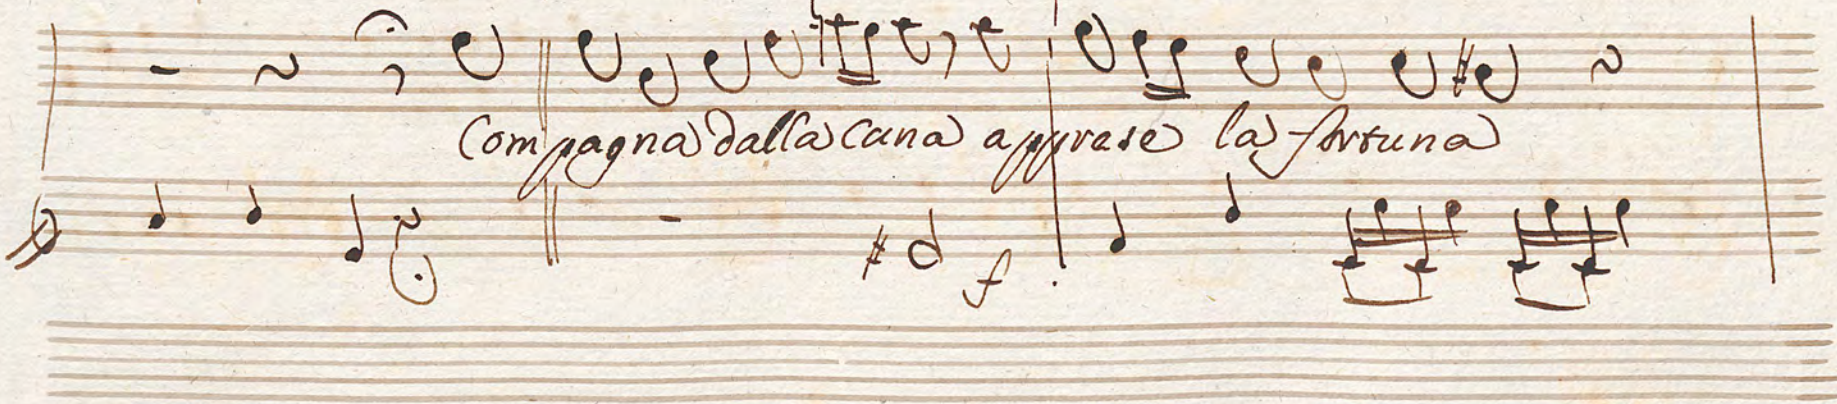 Compagna dalla cuna apprese la fortuna
f